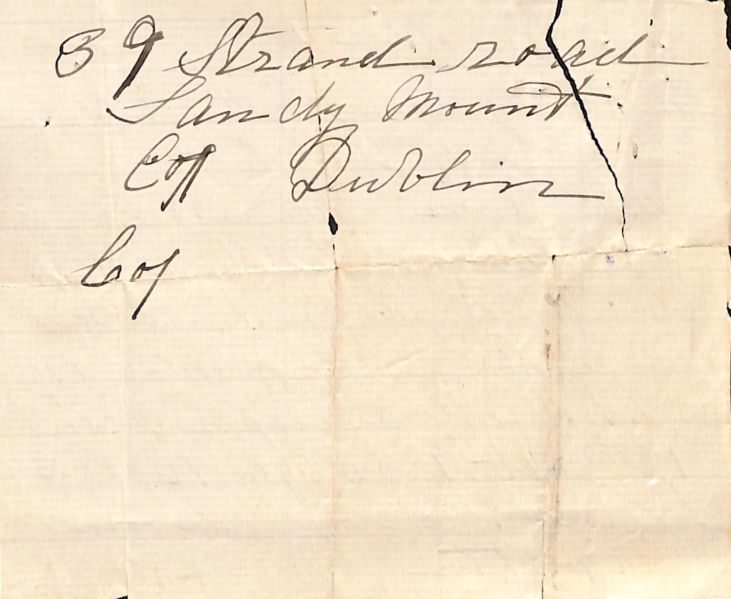 39 Strand road
Sandy Mount
Coy Dublin
Coy